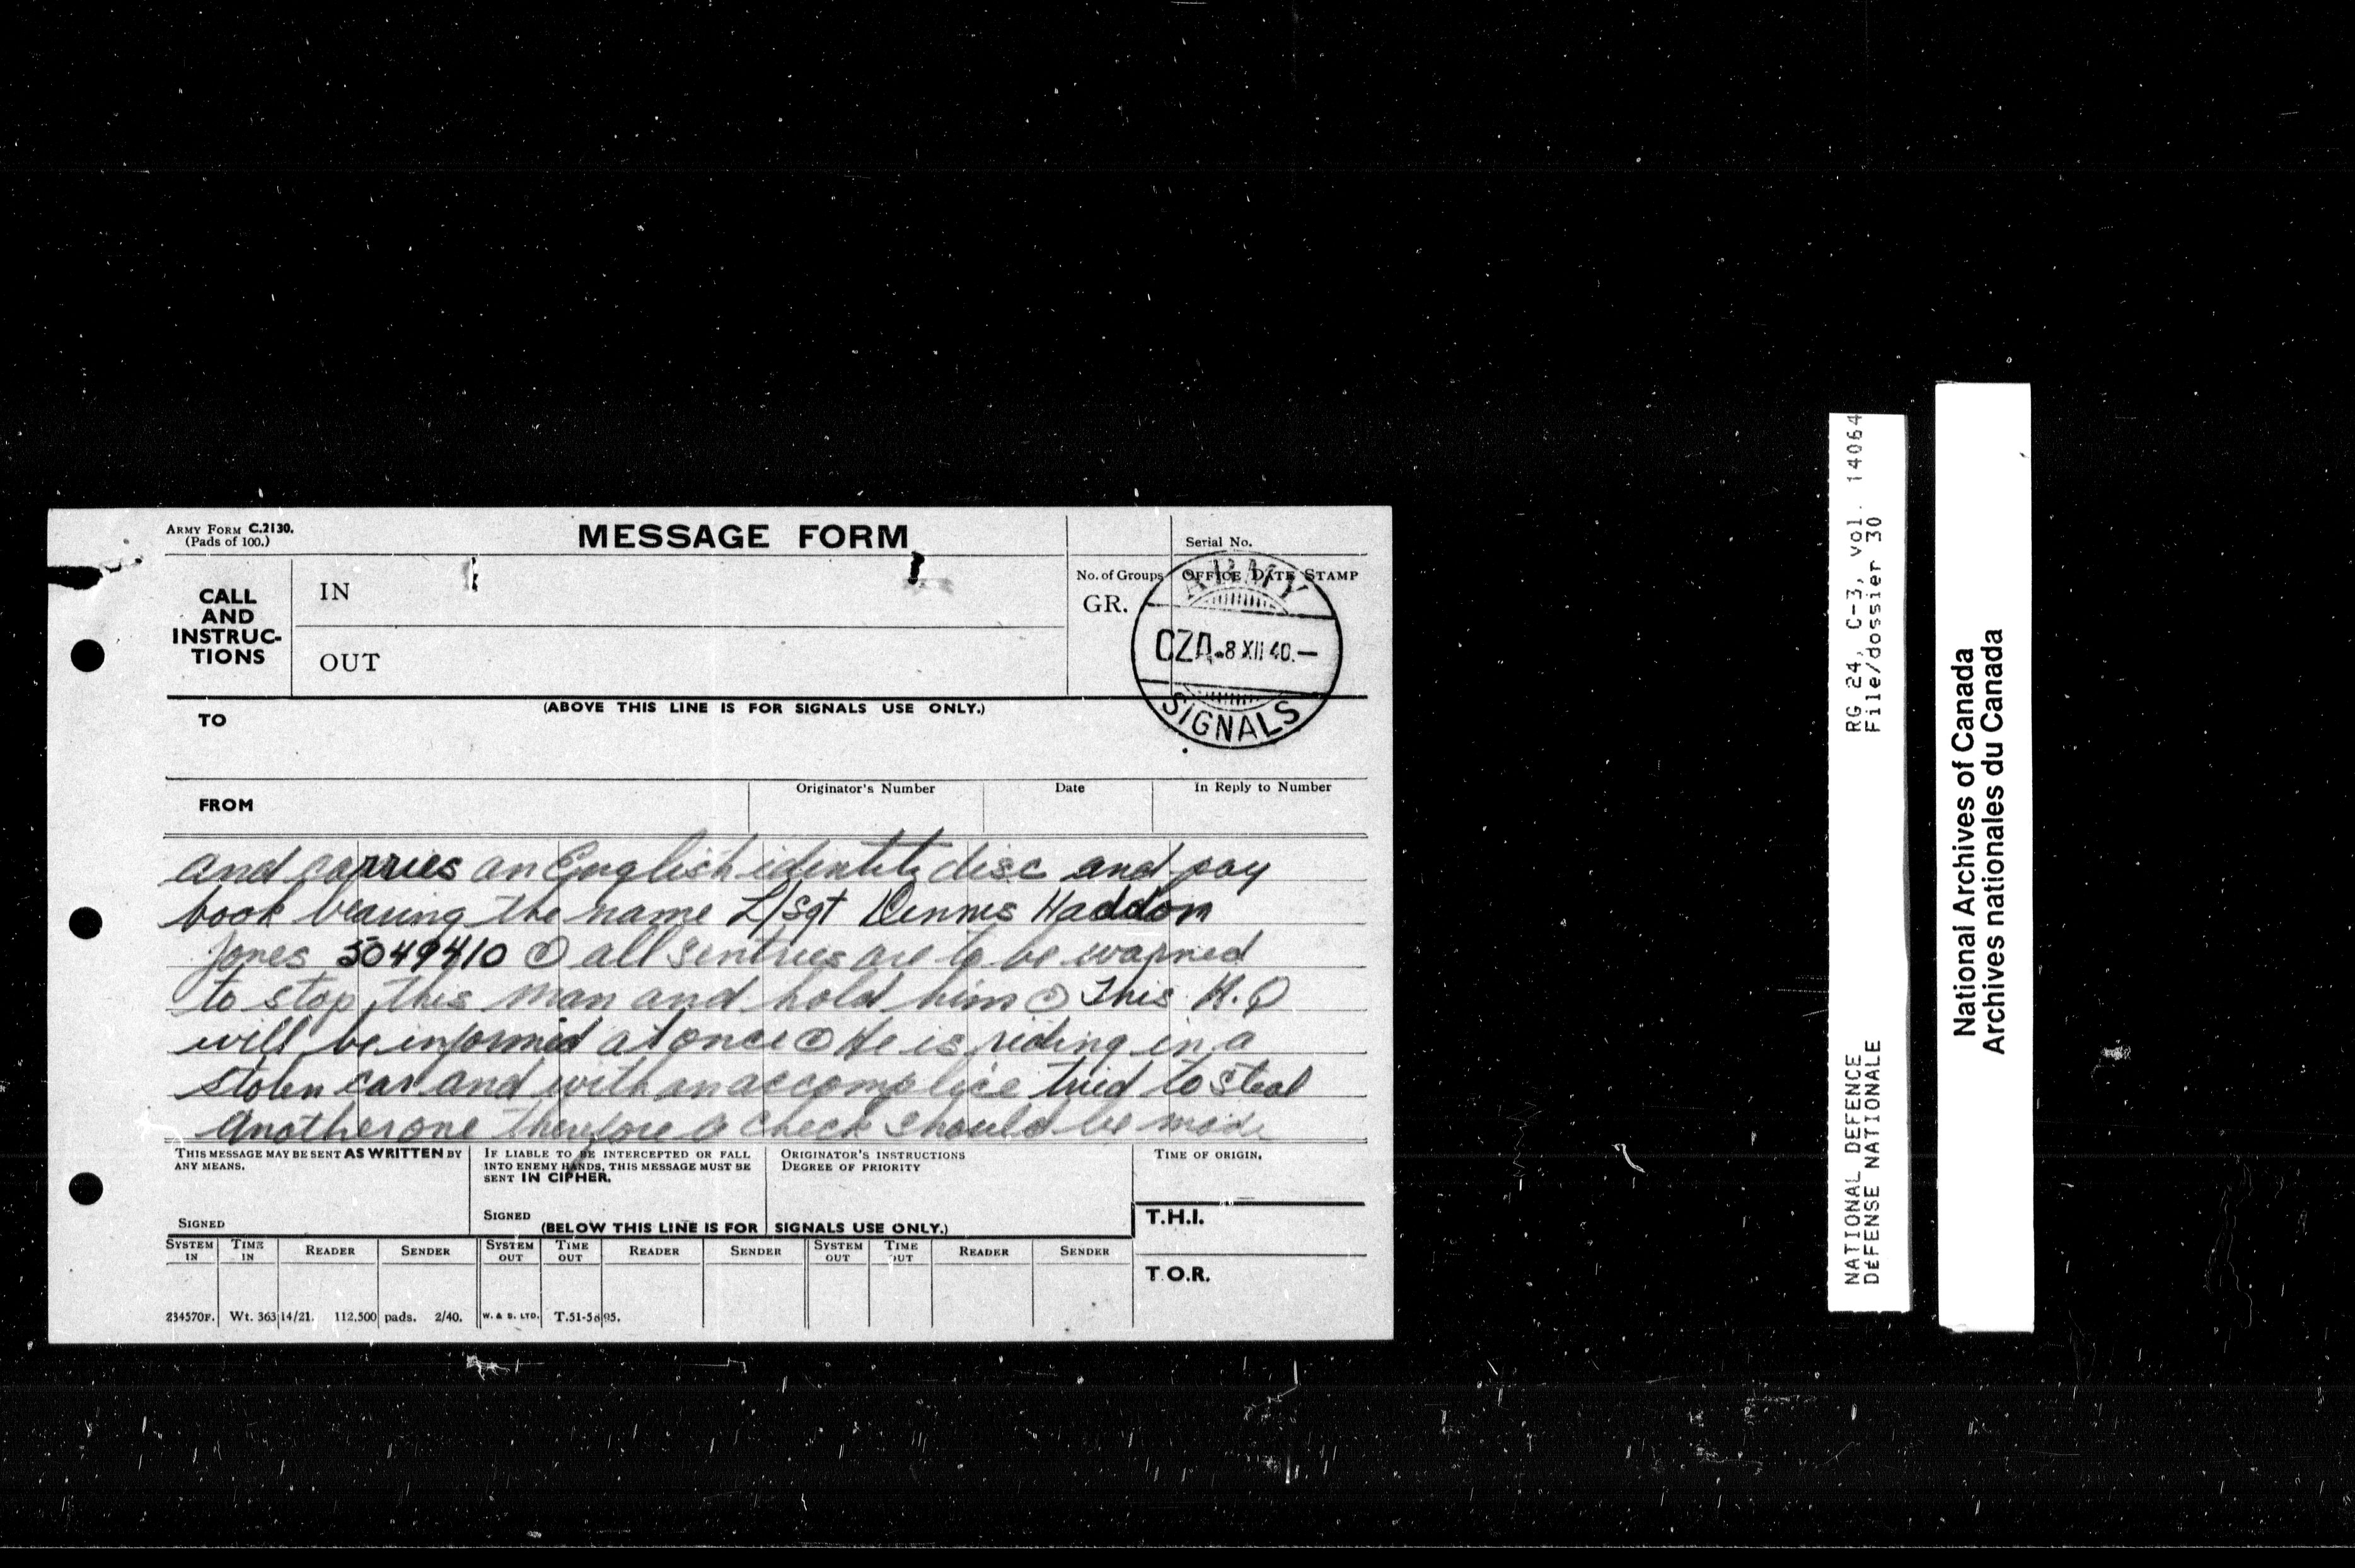 ARMY FORM C.2130.
(Pads of 100.)
MESSAGE FORM
Serial No.
CALL
AND
INSTRUC-
TIONS
IN
OUT
No. of Groups
GR.
OFFICE DATE STAMP
ARMY
CZA -8 XII 40.—
SIGNALS
(ABOVE THIS LINE IS FOR SIGNALS USE ONLY.)
TO
FROM
Originator's Number
Date
In Reply to Number
and carries an English identity disc and pay
book bearing the name L/Sgt Dennis Haddon
Jones 5049410 ⊙ all sentries are to be warned
to stop this man and hold him ⊙ This H.Q
will be informed at once ⊙ He is riding in a
stolen car and with an accomplice tried to steal
another one therefore a check should be made
THIS MESSAGE MAY BE SENT AS WRITTEN BY
ANY MEANS.
SIGNED
IF LIABLE TO BE INTERCEPTED OR FALL
INTO ENEMY HANDS, THIS MESSAGE MUST BE
SENT IN CIPHER.
SIGNED
ORIGINATOR'S INSTRUCTIONS
DEGREE OF PRIORITY
TIME OF ORIGIN.
(BELOW THIS LINE IS FOR SIGNALS USE ONLY.)
T.H.I.
T.O.R.
SYSTEM IN
TIME IN
READER
SENDER
SYSTEM OUT
TIME OUT
READER
SENDER
SYSTEM OUT
TIME OUT
READER
SENDER
234570F. Wt. 36314/21. 112,500 pads. 2/40. W. & S. LTD. T.51-5895.
NATIONAL DEFENCE RG 24, C-3, vol. 14064
DÉFENSE NATIONALE File/dossier 30
National Archives of Canada
Archives nationales du Canada